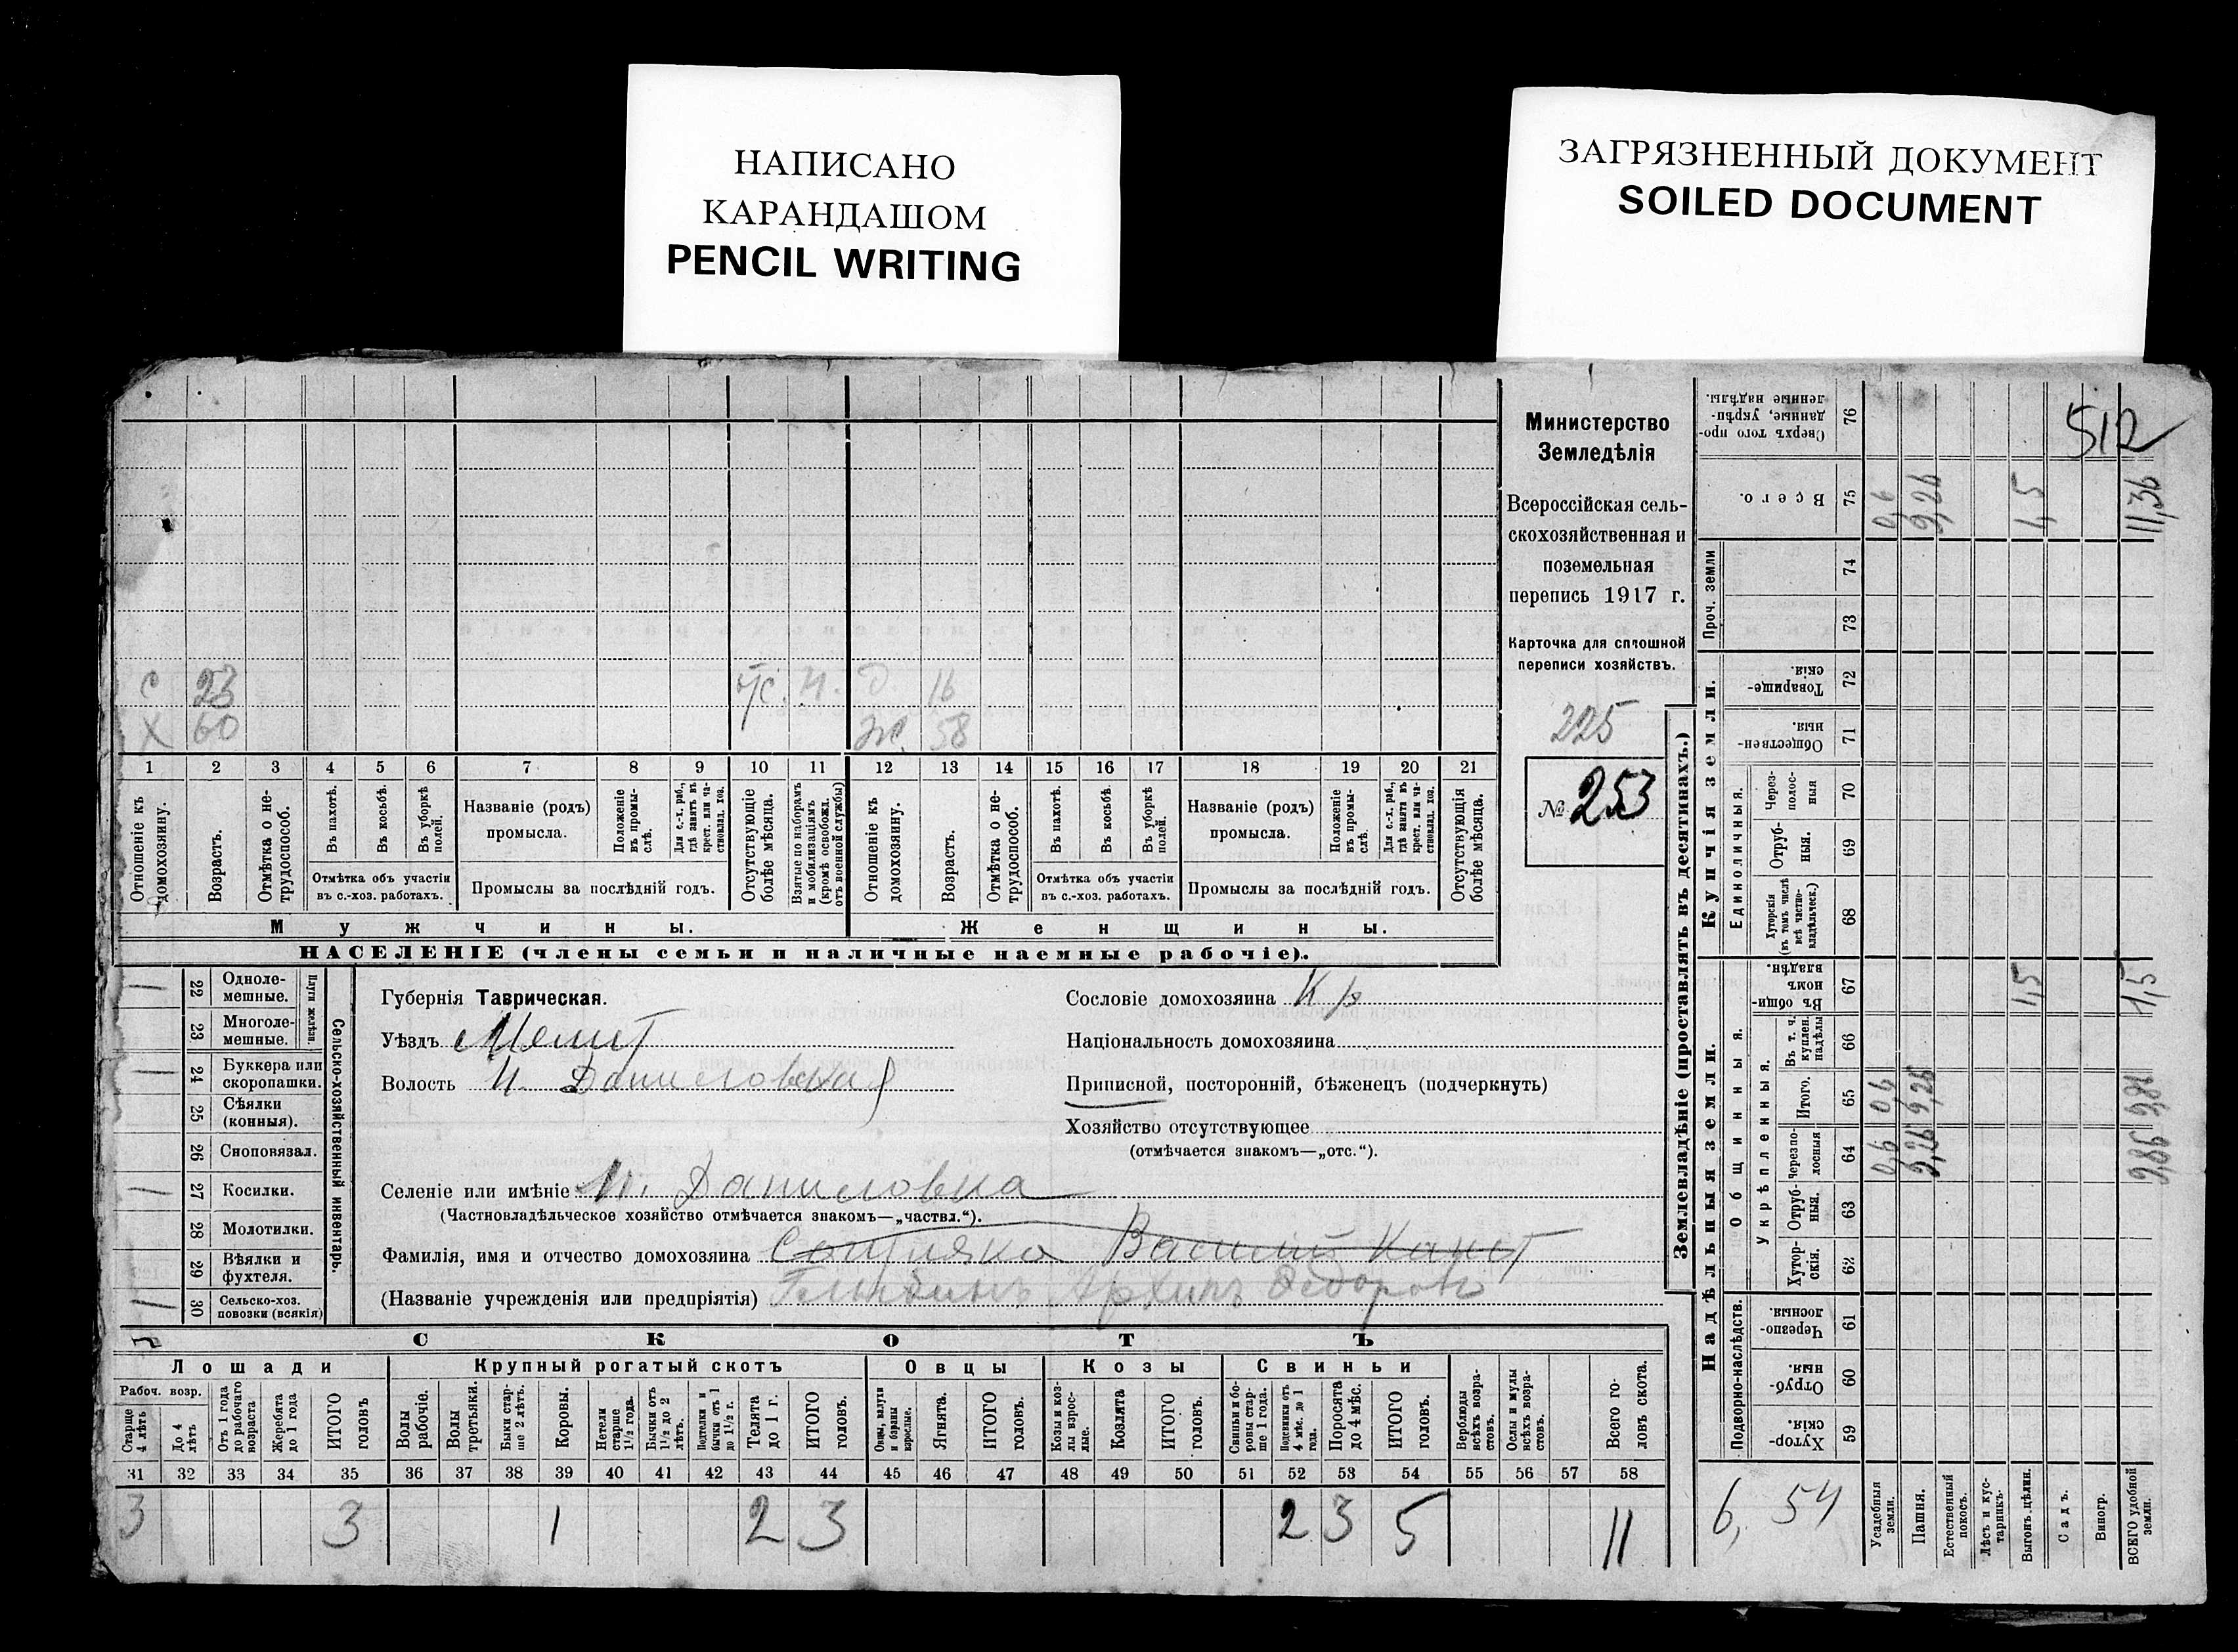 НАПИСАНО
КАРАНДАШОМ
PENCIL WRITING
ЗАГРЯЗНЕННЫЙ ДОКУМЕНТ
SOILED DOCUMENT
512
Министерство
Земледѣлія
Всероссійская сель-
скохозяйственная и
поземельная
перепись 1917 г.
Карточка для сплошной
переписи хозяйствъ.
225
№ 253
с 23 Д. 16
Х 60 Ж. 58
1 2 3 4 5 6 7 8 9 10 11 12 13 14 15 16 17 18 19 20 21
Отношеніе къ домохозяину.
Возрастъ.
Отмѣтка о не-трудоспособ.
Въ пахотѣ.
Въ косьбѣ.
Въ уборкѣ полей.
Отмѣтка объ участіи въ с.-хоз. работахъ.
Названіе (родъ) промысла.
Положеніе въ промы-слѣ.
Для с.-х. раб., гдѣ занятъ въ крест. или ча-стновлад. хоз.
Промыслы за послѣдній годъ.
Отсутствующіе болѣе мѣсяца.
Взятые по наборамъ и мобилизаціямъ (кромѣ освобожд. отъ военной службы)
Отношеніе къ домохозяину.
Возрастъ.
Отмѣтка о не-трудоспособ.
Въ пахотѣ.
Въ косьбѣ.
Въ уборкѣ полей.
Отмѣтка объ участіи въ с.-хоз. работахъ.
Названіе (родъ) промысла.
Положеніе въ промы-слѣ.
Для с.-х. раб., гдѣ занята въ крест. или ча-стновлад. хоз.
Промыслы за послѣдній годъ.
Отсутствующія болѣе мѣсяца.
Мужчины. Женщины.
НАСЕЛЕНІЕ (члены семьи и наличные наемные рабочіе).
Сельско-хозяйственный инвентарь.
Плуги желѣзн.
22 Одноле-мешные.
23 Многоле-мешные.
24 Буккера или скоропашки.
25 Сѣялки (конныя).
26 Сноповязал.
27 Косилки.
28 Молотилки.
29 Вѣялки и фухтеля.
30 Сельско-хоз. повозки (всякія)
Губернія Таврическая.
Уѣздъ Мелит
Волость Н. Даниловская
Сословіе домохозяина Кр
Національность домохозяина
Приписной, посторонній, бѣженецъ (подчеркнуть)
Хозяйство отсутствующее
(отмѣчается знакомъ—„отс.“).
Селеніе или имѣніе Н. Даниловка
(Частновладѣльческое хозяйство отмѣчается знакомъ—„частвл.“).
Фамилія, имя и отчество домохозяина Василий
(Названіе учрежденія или предпріятія) Архипъ Федоров
СКОТЪ
Лошади Крупный рогатый скотъ Овцы Козы Свиньи
Рабоч. возр.
Старше 4 лѣтъ
До 4 лѣтъ
Отъ 1 года до рабочаго возраста
Жеребята до 1 года
ИТОГО головъ
Волы рабочіе.
Волы третьяки.
Быки стар-ше 2 лѣтъ.
Коровы.
Нетели старше 1½ года.
Бычки отъ 1½ до 2 лѣтъ.
Подтелки и бычки отъ 1 до 1½ г.
Телята до 1 г.
ИТОГО головъ.
Овцы, валухи и бараны взрослые.
Ягнята.
ИТОГО головъ.
Козы и коз-лы взрос-лые.
Козлята
ИТОГО головъ.
Свиньи и бо-ровы стар-ше 1 года.
Подсвинки отъ 4 мѣс. до 1 года.
Поросята до 4 мѣс.
ИТОГО головъ.
Верблюды всѣхъ возра-стовъ.
Ослы и мулы всѣхъ возра-стовъ.
Всего го-ловъ скота.
31 32 33 34 35 36 37 38 39 40 41 42 43 44 45 46 47 48 49 50 51 52 53 54 55 56 57 58
3 3 1 2 3 2 3 5 11
Землевладѣніе (проставлять въ десятинахъ.)
Надѣльныя земли. Купчія земли. Проч. земли
Подворно-наслѣдств.
Общинныя.
Укрѣпленныя.
Единоличныя.
Хутор-скія. 59
Отруб-ныя. 60
Черезпо-лосныя 61
Хутор-скія. 62
Отруб-ныя. 63
Черезпо-лосныя 64 0,6 9,26 9,86
Итого. 65 0,6 9,26 9,86
Въ т. ч. куплен. надѣлы 66
Въ общи-номъ владѣн. 67 1,5 1,5
Хуторскія (въ томъ числѣ всѣ частно-владѣльческ.) 68
Отруб-ныя. 69
Через-полос-ныя 70
Обществен-ныя. 71
Товарище-скія. 72
73
74
Всего. 75 0,6 9,26 1,5 11,36
Сверхъ того про-данные, укрѣп-ленные надѣлы. 76
6, 54
Усадебныя земли.
Пашня.
Естественный покосъ.
Лѣсъ и кус-тарникъ.
Выгонъ, цѣлин.
Садъ.
Виногр.
ВСЕГО удобной земли.